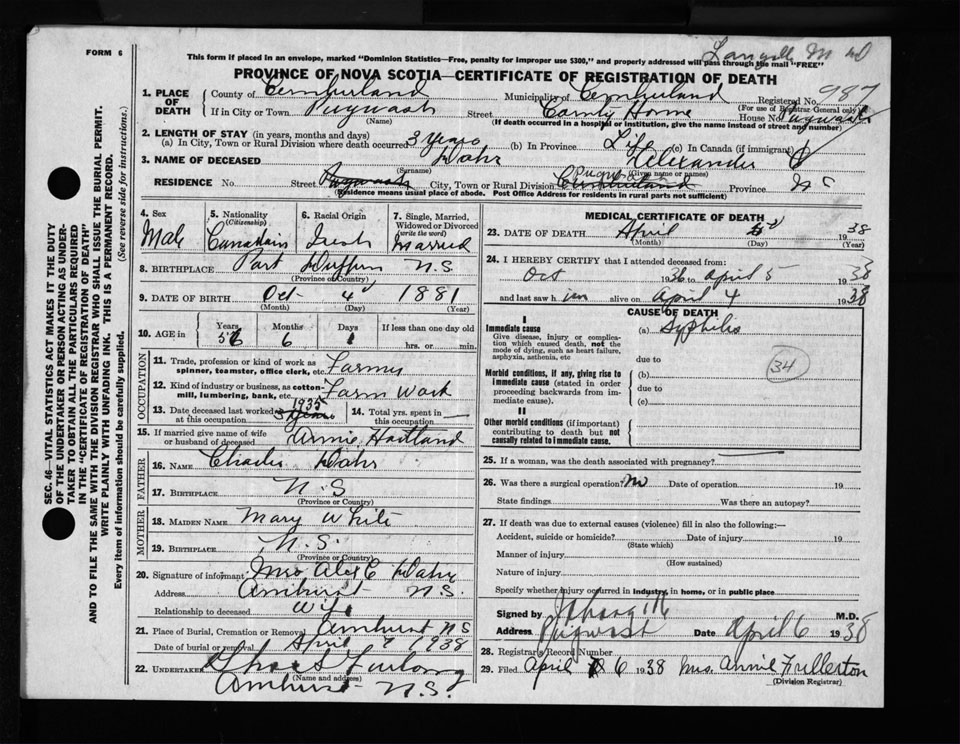 FORM 6
This form if placed in an envelope, marked "Dominion Statistics—Free, penalty for improper use $300," and properly addressed will pass through the mail "FREE"
PROVINCE OF NOVA SCOTIA—CERTIFICATE OF REGISTRATION OF DEATH
1. PLACE OF DEATH County of Cumberland Municipality of Cumberland Registered No. 987
(For use of Registrar General only)
If in City or Town Pugwash Street County Home House No. Pugwash
(Name) (If death occurred in a hospital or institution, give the name instead of street and number)
2. LENGTH OF STAY (in years, months and days)
(a) In City, Town or Rural Division where death occurred 3 years (b) In Province Life (c) In Canada (if immigrant)
3. NAME OF DECEASED Dahr Alexander
(Surname) (Given name or names)
RESIDENCE No. Street Pugwash City, Town or Rural Division Cumberland Province N S
(Residence means usual place of abode. Post Office Address for residents in rural parts not sufficient)
SEC. 46—VITAL STATISTICS ACT MAKES IT THE DUTY
OF THE UNDERTAKER OR PERSON ACTING AS UNDER-
TAKER TO OBTAIN ALL THE PARTICULARS REQUIRED
IN THE "CERTIFICATE OF REGISTRATION OF DEATH"
AND TO FILE THE SAME WITH THE DIVISION REGISTRAR WHO SHALL ISSUE THE BURIAL PERMIT.
WRITE PLAINLY WITH UNFADING INK. THIS IS A PERMANENT RECORD.
Every item of information should be carefully supplied. (See reverse side for instructions.)
4. Sex 5. Nationality (Citizenship) 6. Racial Origin 7. Single, Married, Widowed or Divorced (write the word)
Male Canadain Married
8. BIRTHPLACE Port Dufferin N.S.
(Province or Country)
9. DATE OF BIRTH Oct 4 1881
(Month) (Day) (Year)
10. AGE in Years Months Days If less than one day old
56 6 1 hrs. or min.
OCCUPATION
11. Trade, profession or kind of work as spinner, teamster, office clerk, etc. Farmer
12. Kind of industry or business, as cotton-mill, lumbering, bank, etc. Farm Work
13. Date deceased last worked at this occupation 1935 14. Total yrs. spent in this occupation
15. If married give name of wife or husband of deceased Annie Hartland
FATHER
16. NAME Charles Dahr
17. BIRTHPLACE N.S
(Province or Country)
MOTHER
18. MAIDEN NAME Mary White
19. BIRTHPLACE N.S.
(Province or Country)
20. Signature of informant Mrs Alex C Dahr
Address Amherst N.S.
Relationship to deceased Wife
21. Place of Burial, Cremation or Removal Amherst N S
Date of burial or removal April 7 1938
22. UNDERTAKER Furlong
(Name and address)
Amherst N.S.
MEDICAL CERTIFICATE OF DEATH
23. DATE OF DEATH April 5 1938
(Month) (Day) (Year)
24. I HEREBY CERTIFY that I attended deceased from:
Oct 1936 to April 5 1938
and last saw him alive on April 4 1938
CAUSE OF DEATH
I
Immediate cause (a) Syphilis
Give disease, injury or complication which caused death, not the mode of dying, such as heart failure, asphyxia, asthenia, etc
due to
34
Morbid conditions, if any, giving rise to immediate cause (stated in order proceeding backwards from immediate cause).
(b)
due to
(c)
II
Other morbid conditions (if important) contributing to death but not causally related to immediate cause.
25. If a woman, was the death associated with pregnancy?
26. Was there a surgical operation? no Date of operation 19
State findings Was there an autopsy?
27. If death was due to external causes (violence) fill in also the following:—
Accident, suicide or homicide? Date of injury 19
(State which)
Manner of injury
(How sustained)
Nature of injury
Specify whether injury occurred in industry, in home, or in public place
Signed by M.D.
Address Pugwash Date April 6 1938
28. Registrar's Record Number
29. Filed April 6 1938 Mrs. Annie Fullerton
(Division Registrar)